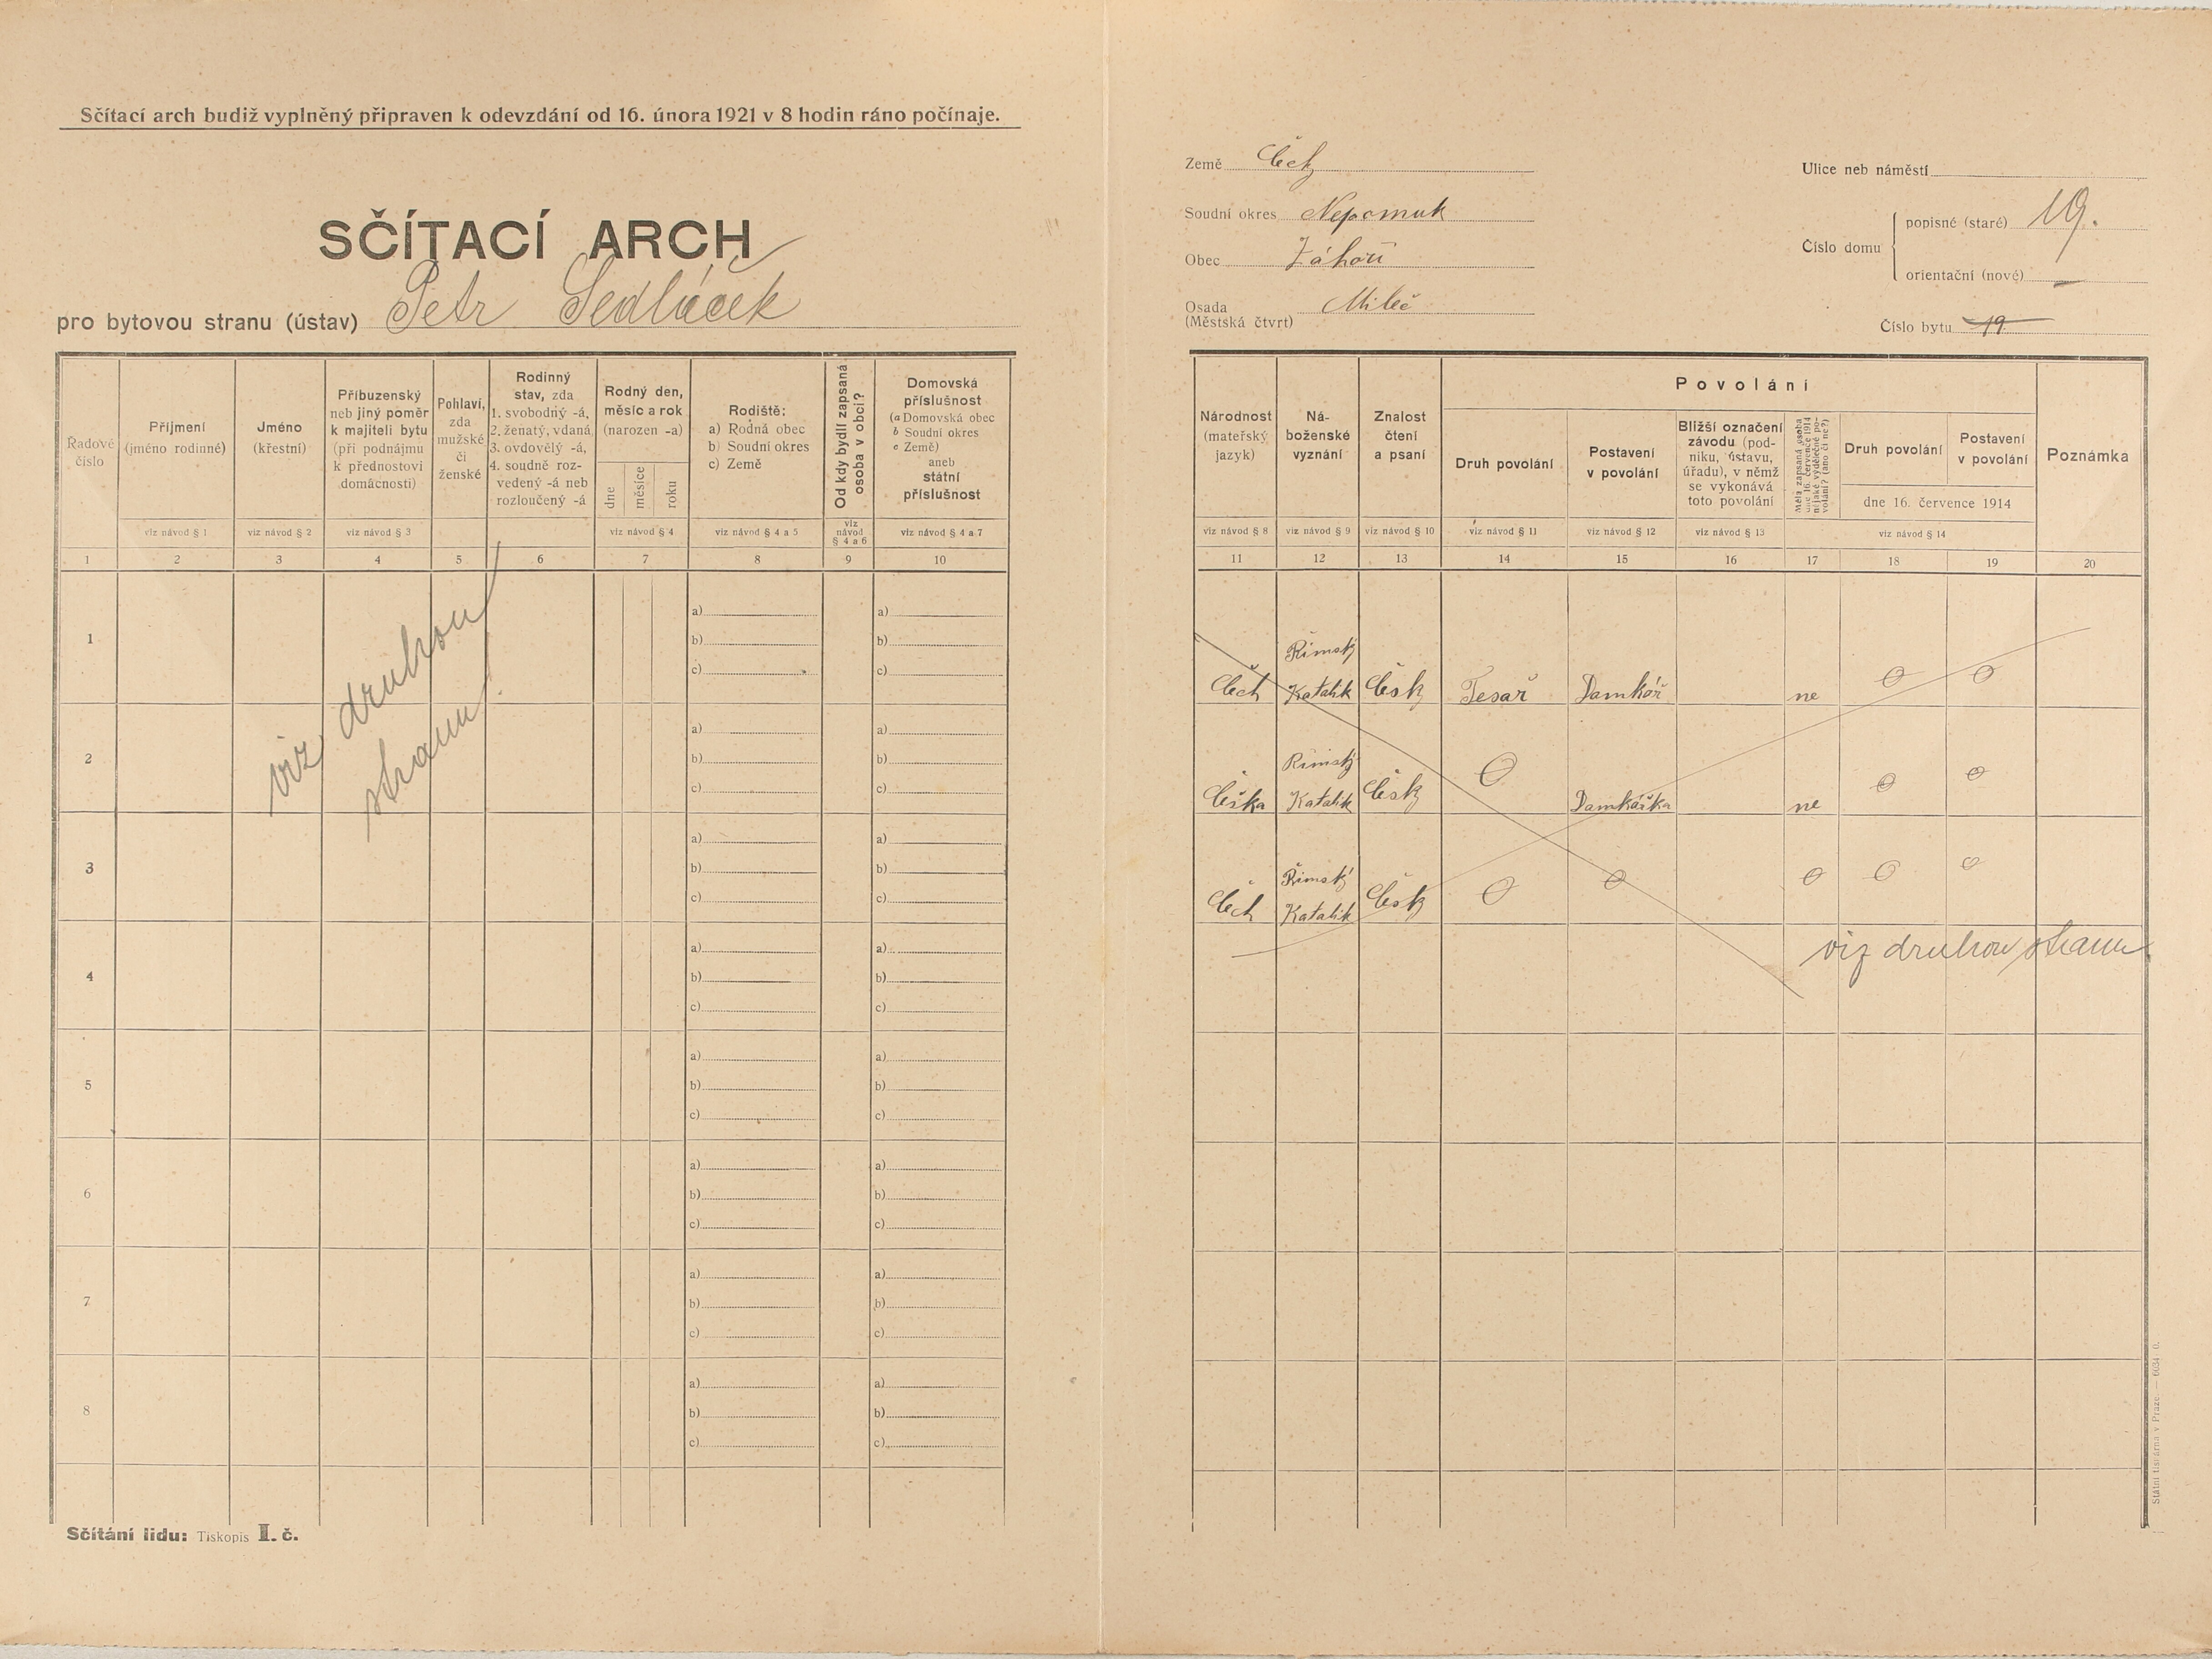 Sčítací arch budiž vyplněný připraven k odevzdání od 16. února 1921 v 8 hodin ráno počínaje.
SČÍTACÍ ARCH
pro bytovou stranu (ústav) Petr Sedláček
Země Čechy
Soudní okres Nepomuk
Obec Záhoří
Osada
(Městská čtvrt) Mileč
Ulice neb náměstí
Číslo domu
popisné (staré) 19.
orientační (nové) —
Číslo bytu 19
Řadové
číslo
Příjmení
(jméno rodinné)
Jméno
(křestní)
Příbuzenský
neb jiný poměr
k majiteli bytu
(při podnájmu
k přednostovi
domácnosti)
Pohlaví,
zda
mužské
či
ženské
Rodinný
stav, zda
1. svobodný -á,
2. ženatý, vdaná,
3. ovdovělý -á,
4. soudně roz-
vedený -á neb
rozloučený -á
Rodný den,
měsíc a rok
(narozen -a)
dne
měsíce
roku
Rodiště:
a) Rodná obec
b) Soudní okres
c) Země
Od kdy bydlí zapsaná
osoba v obci?
Domovská
příslušnost
(a Domovská obec
b Soudní okres
c Země)
aneb
státní
příslušnost
viz návod § 1
viz návod § 2
viz návod § 3
viz návod § 4
viz návod § 4 a 5
viz
návod
§ 4 a 6
viz návod § 4 a 7
1 2 3 4 5 6 7 8 9 10
Národnost
(mateřský
jazyk)
Ná-
boženské
vyznání
Znalost
čtení
a psaní
Povolání
Druh povolání
Postavení
v povolání
Bližší označení
závodu (pod-
niku, ústavu,
úřadu), v němž
se vykonává
toto povolání
Měla zapsaná osoba
dne 16. července 1914
nějaké výdělečné po-
volání? (ano či ne?)
Druh povolání
Postavení
v povolání
dne 16. července 1914
Poznámka
viz návod § 8
viz návod § 9
viz návod § 10
viz návod § 11
viz návod § 12
viz návod § 13
viz návod § 14
11 12 13 14 15 16 17 18 19 20
1
a)
b)
c)
a)
b)
c)
2
a)
b)
c)
a)
b)
c)
3
a)
b)
c)
a)
b)
c)
4
a)
b)
c)
a)
b)
c)
5
a)
b)
c)
a)
b)
c)
6
a)
b)
c)
a)
b)
c)
7
a)
b)
c)
a)
b)
c)
8
a)
b)
c)
a)
b)
c)
viz druhou
stranu!
Římský
Čech Katolik Česky Tesař Domkář ne 0 0
Římský
Češka Katolik Česky 0 Domkářka ne 0 0
Římský
Čech Katolik Česky 0 0 0 0 0
viz druhou stranu
Sčítání lidu: Tiskopis I. č.
Státní tiskárna v Praze. — 6634 0.